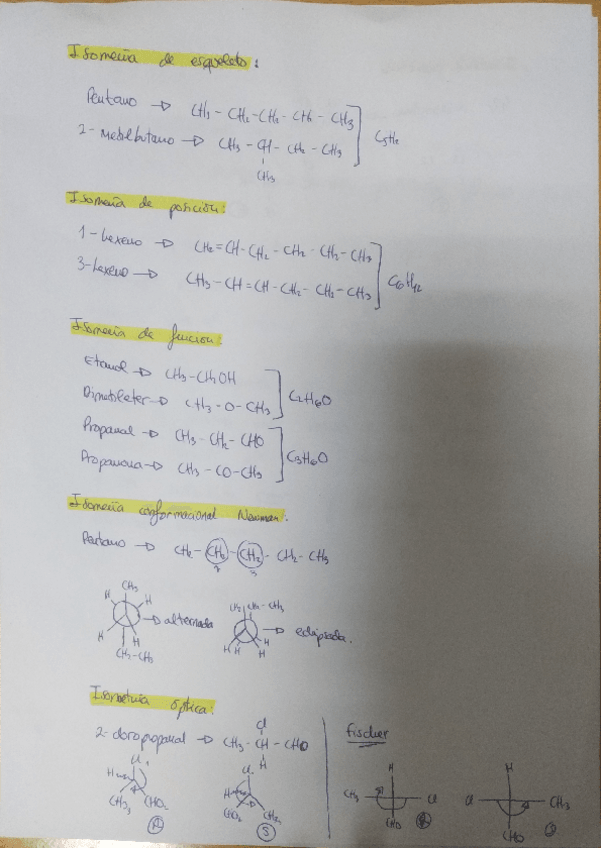 Isomería de esqueleto:
Pentano → CH3 - CH2 - CH2 - CH2 - CH3
2-metilbutano → CH3 - CH - CH2 - CH3
CH3
Isomería de posición:
1-hexeno → CH2=CH-CH2-CH2-CH2-CH3
3-hexeno → CH3-CH=CH-CH2-CH2-CH3
C6H12
Isomería de función:
Etanol → CH3-CH2OH
Dimetileter → CH3-O-CH3
C2H6O
Propanal → CH3-CH2-CHO
Propanona → CH3-CO-CH3
C3H6O
Isomería conformacional Newman:
Pentano → CH2-CH2-CH2-CH2-CH3
CH3
H H
→ alternada
H H
CH2-CH3
CH3 CH2-CH3
→ eclipsada.
H H H
Isometría óptica:
Cl
2-cloropropanal → CH3-CH-CHO
H
Fischer
H
CH3 Cl
CHO R
H
Cl CH3
CHO
S